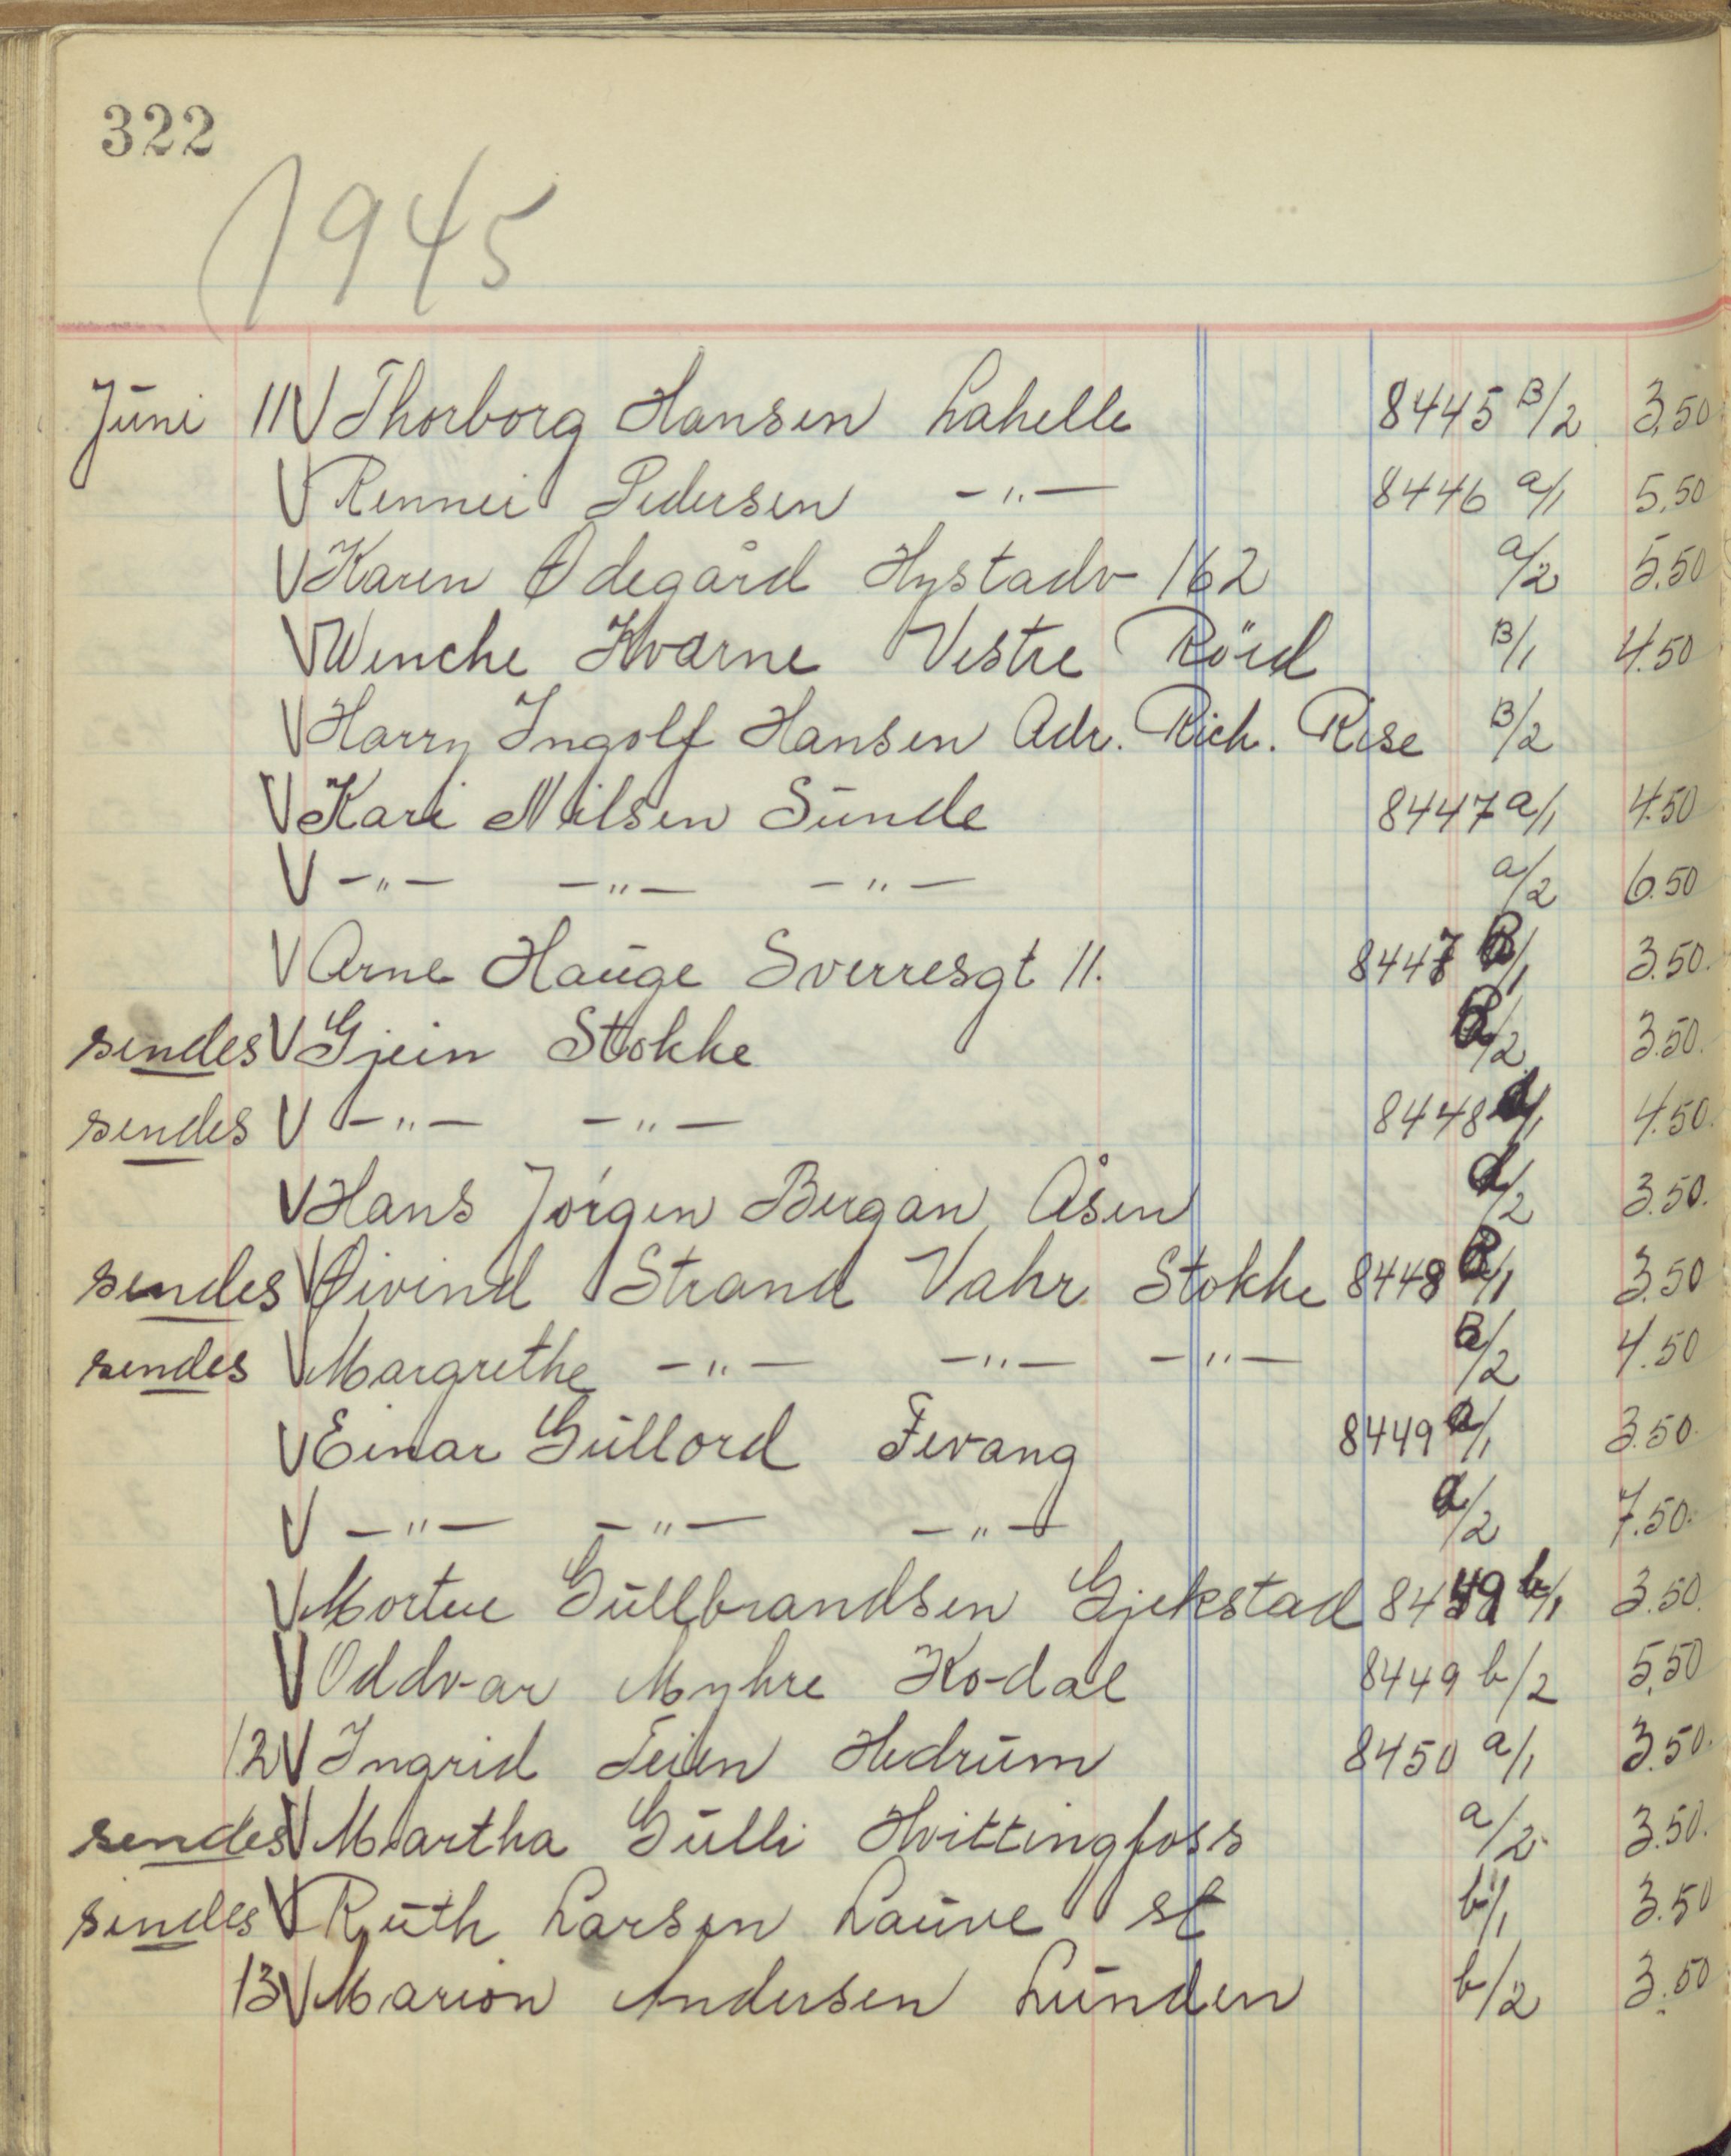 322
1945
Juni 11 V Thorborg Hansen Lahelle 8445 B/2 3,50
V Rennei Pedersen -"- 8446 a/1 5,50
V Karen Ødegård Hystadv 162 a/2 5.50
V Wenche Kvarne Vestre Röid B/1 4.50
V Harry Ingolf Hansen Adr. Rich. Rise B/2
V Kari Nilsen Sunde 8447 a/1 4.50
V -"- -"- -"- a/2 6.50
V Arne Hauge Sverresgt 11. 8447 B/1 3.50.
sendes V Gjein Stokke B/2 3.50.
sendes V -"- -"- 8448 a/1 4.50.
V Hans Jörgen Bergan Åsen a/2 3.50.
sendes V Øivind Strand Vahr Stokke 8448 B/1 3.50
sendes V Margrethe -"- -"- -"- B/2 4.50
V Einar Gullord Fevang 8449 a/1 3.50.
V -"- -"- -"- a/2 7.50.
V Morten Gullbrandsen Gjekstad 8449 b/1 3.50.
V Oddvar Myhre Kodal 8449 b/2 5,50
12 V Ingrid Feien Hedrum 8450 a/1 3.50.
sendes V Martha Gulli Hvittingfoss a/2 3.50.
sendes V Ruth Larsen Lauve st b/1 3.50
13 V Marion Andersen Lunden b/2 3.50